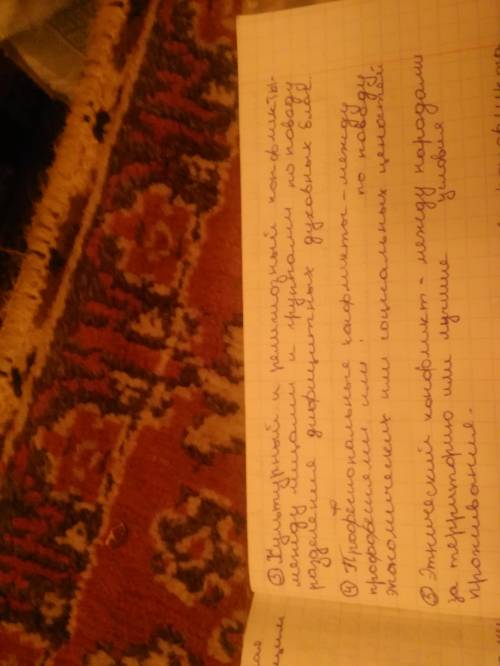 ③ Культурный и религиозный конфликты-
между лицами и группами по поводу
разделения дефицитных духовных благ
④ Професиональные конфликты - между
профессиями или по поводу
экономических или социальных ценностей
⑤ Этнический конфликт - между народами
за территорию или лучшие условия
проживания.